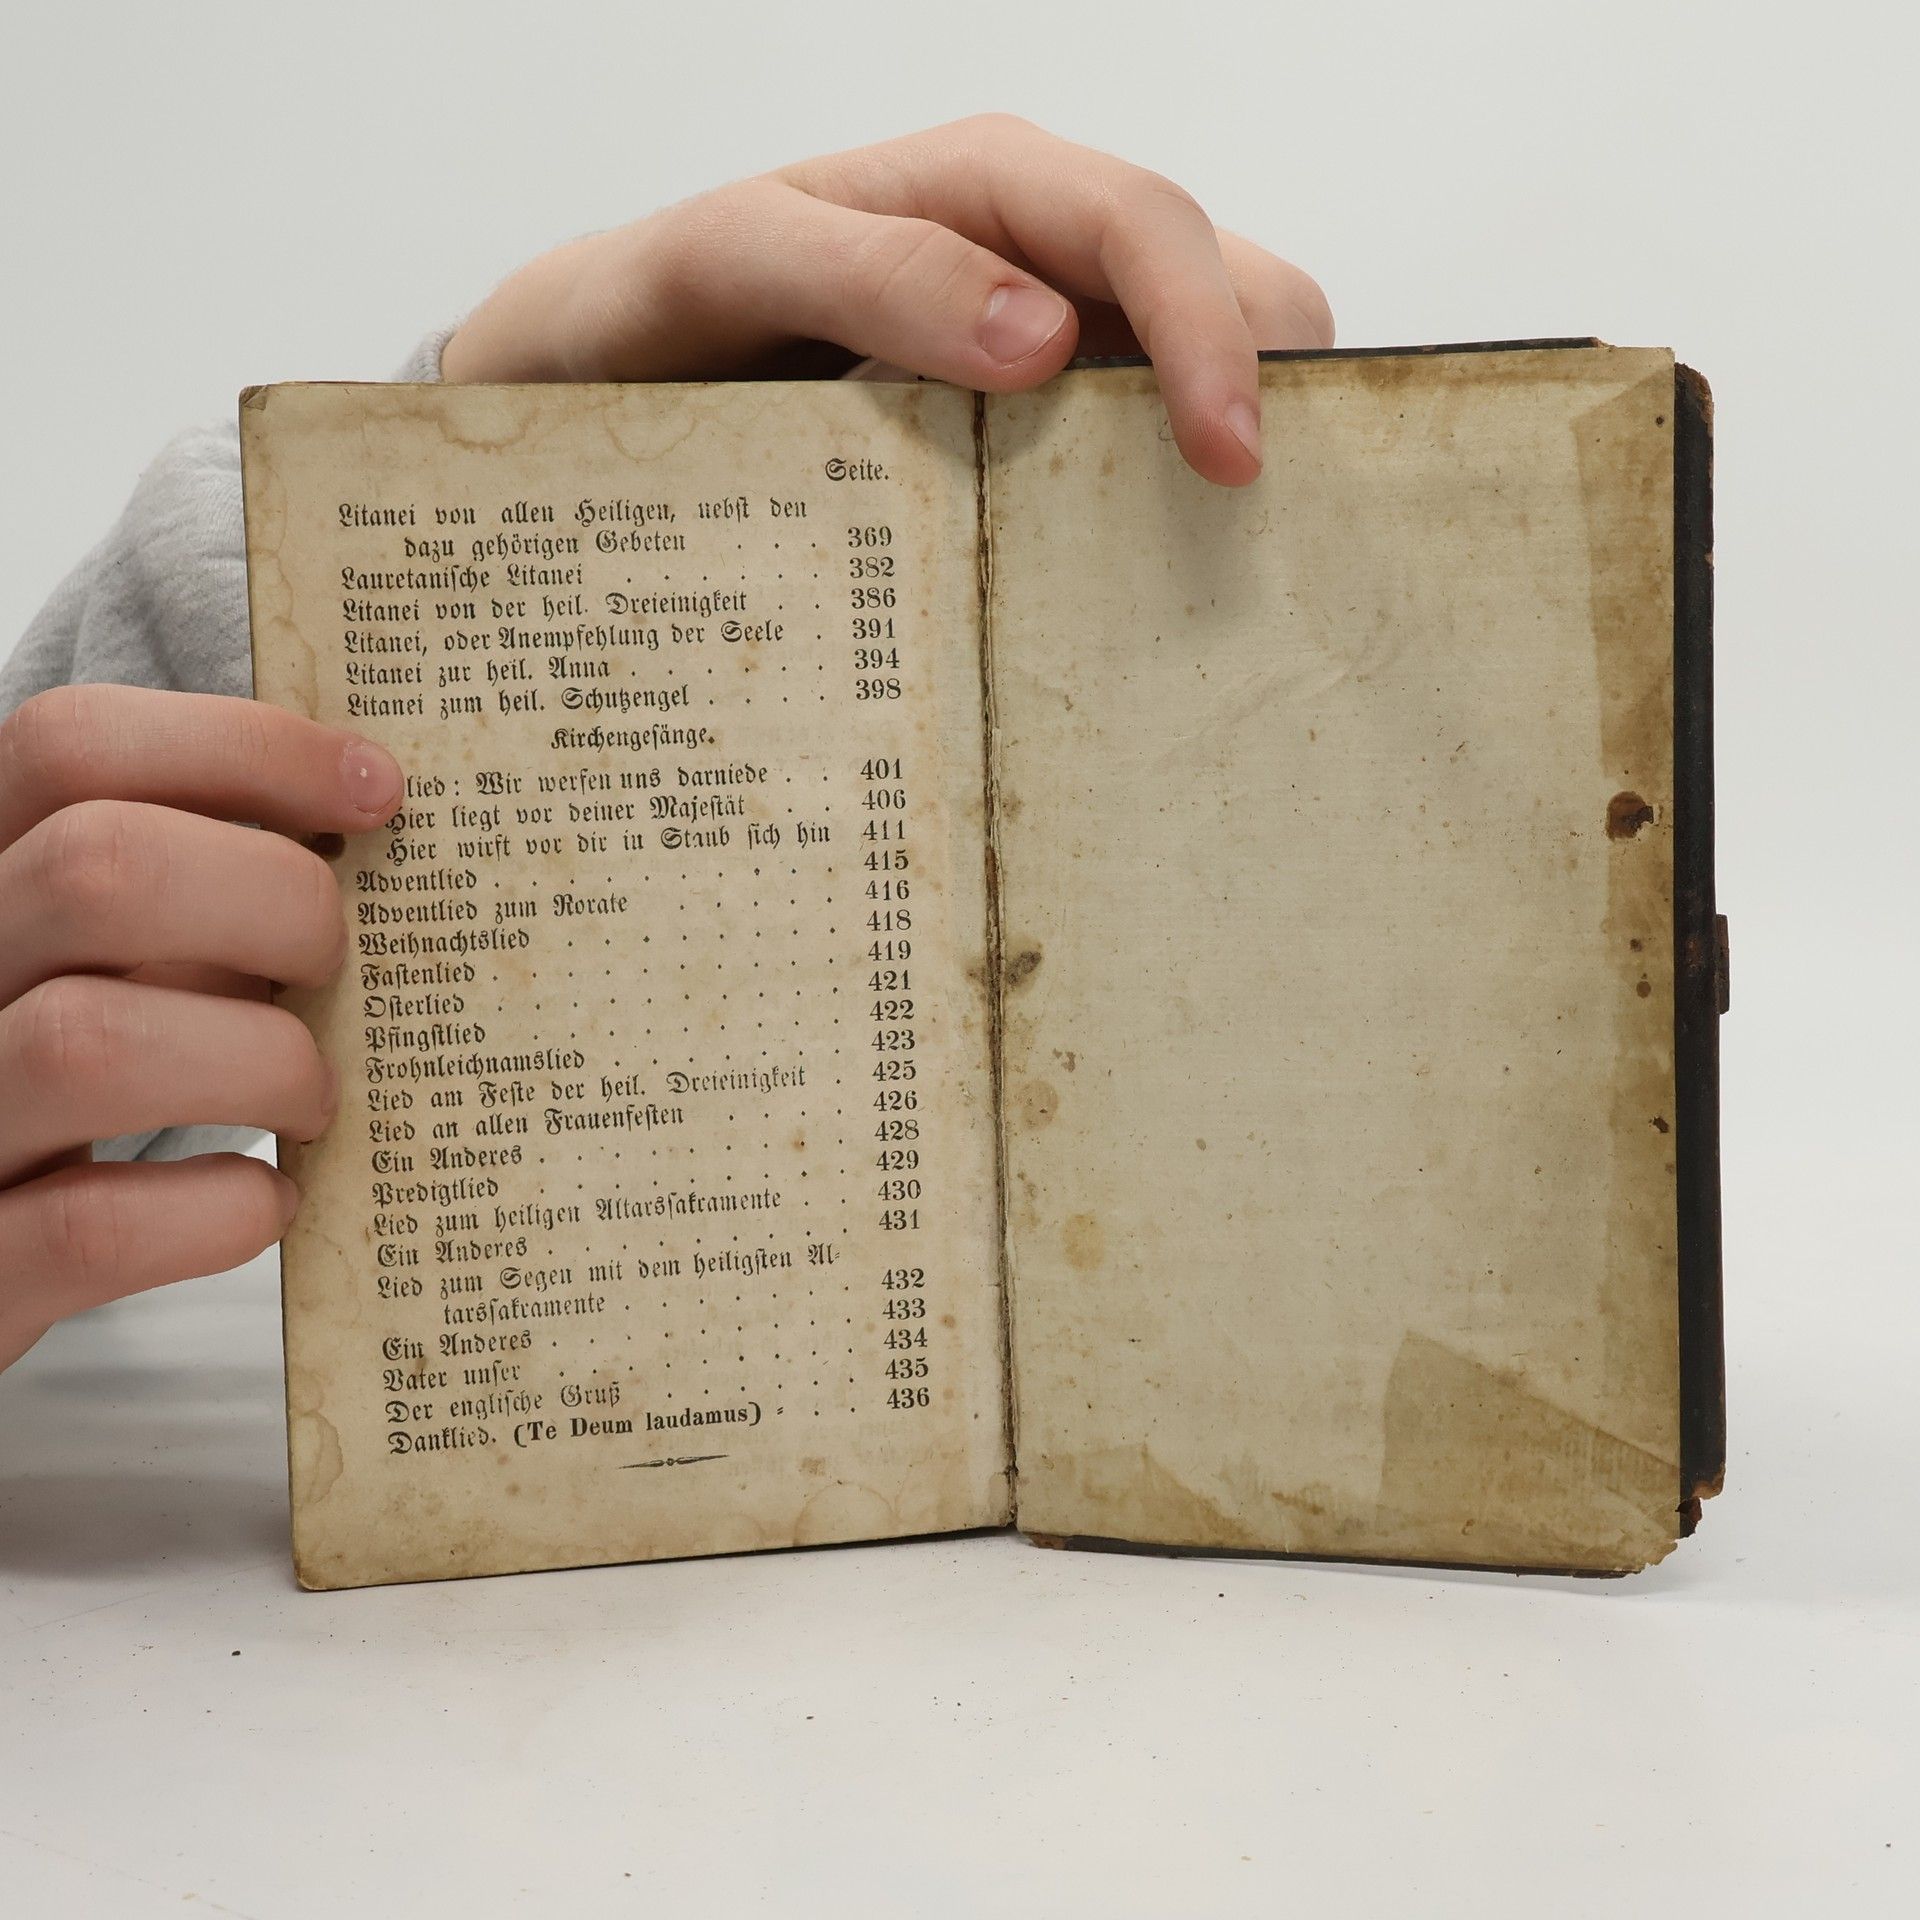 Seite.
Litanei von allen Heiligen, nebst den
dazu gehörigen Gebeten . . . 369
Lauretanische Litanei . . . . . . 382
Litanei von der heil. Dreieinigkeit . . 386
Litanei, oder Anempfehlung der Seele . 391
Litanei zur heil. Anna . . . . . . 394
Litanei zum heil. Schutzengel . . . . 398
Kirchengesänge.
lied: Wir werfen uns darniede . . 401
Hier liegt vor deiner Majestät . . 406
Hier wirft vor dir in Staub sich hin 411
Adventlied . . . . . . . . . . 415
Adventlied zum Rorate . . . . . 416
Weihnachtslied . . . . . . . . 418
Fastenlied . . . . . . . . . . 419
Osterlied . . . . . . . . . . 421
Pfingstlied . . . . . . . . . 422
Frohnleichnamslied . . . . . . . 423
Lied am Feste der heil. Dreieinigkeit . 425
Lied an allen Frauenfesten . . . . 426
Ein Anderes . . . . . . . . . 428
Predigtlied . . . . . . . . . 429
Lied zum heiligen Altarssakramente . . 430
Ein Anderes . . . . . . . . . 431
Lied zum Segen mit dem heiligsten Al-
tarssakramente . . . . . . . 432
Ein Anderes . . . . . . . . . 433
Vater unser . . . . . . . . . 434
Der englische Gruß . . . . . . 435
Danklied. (Te Deum laudamus) - . . 436